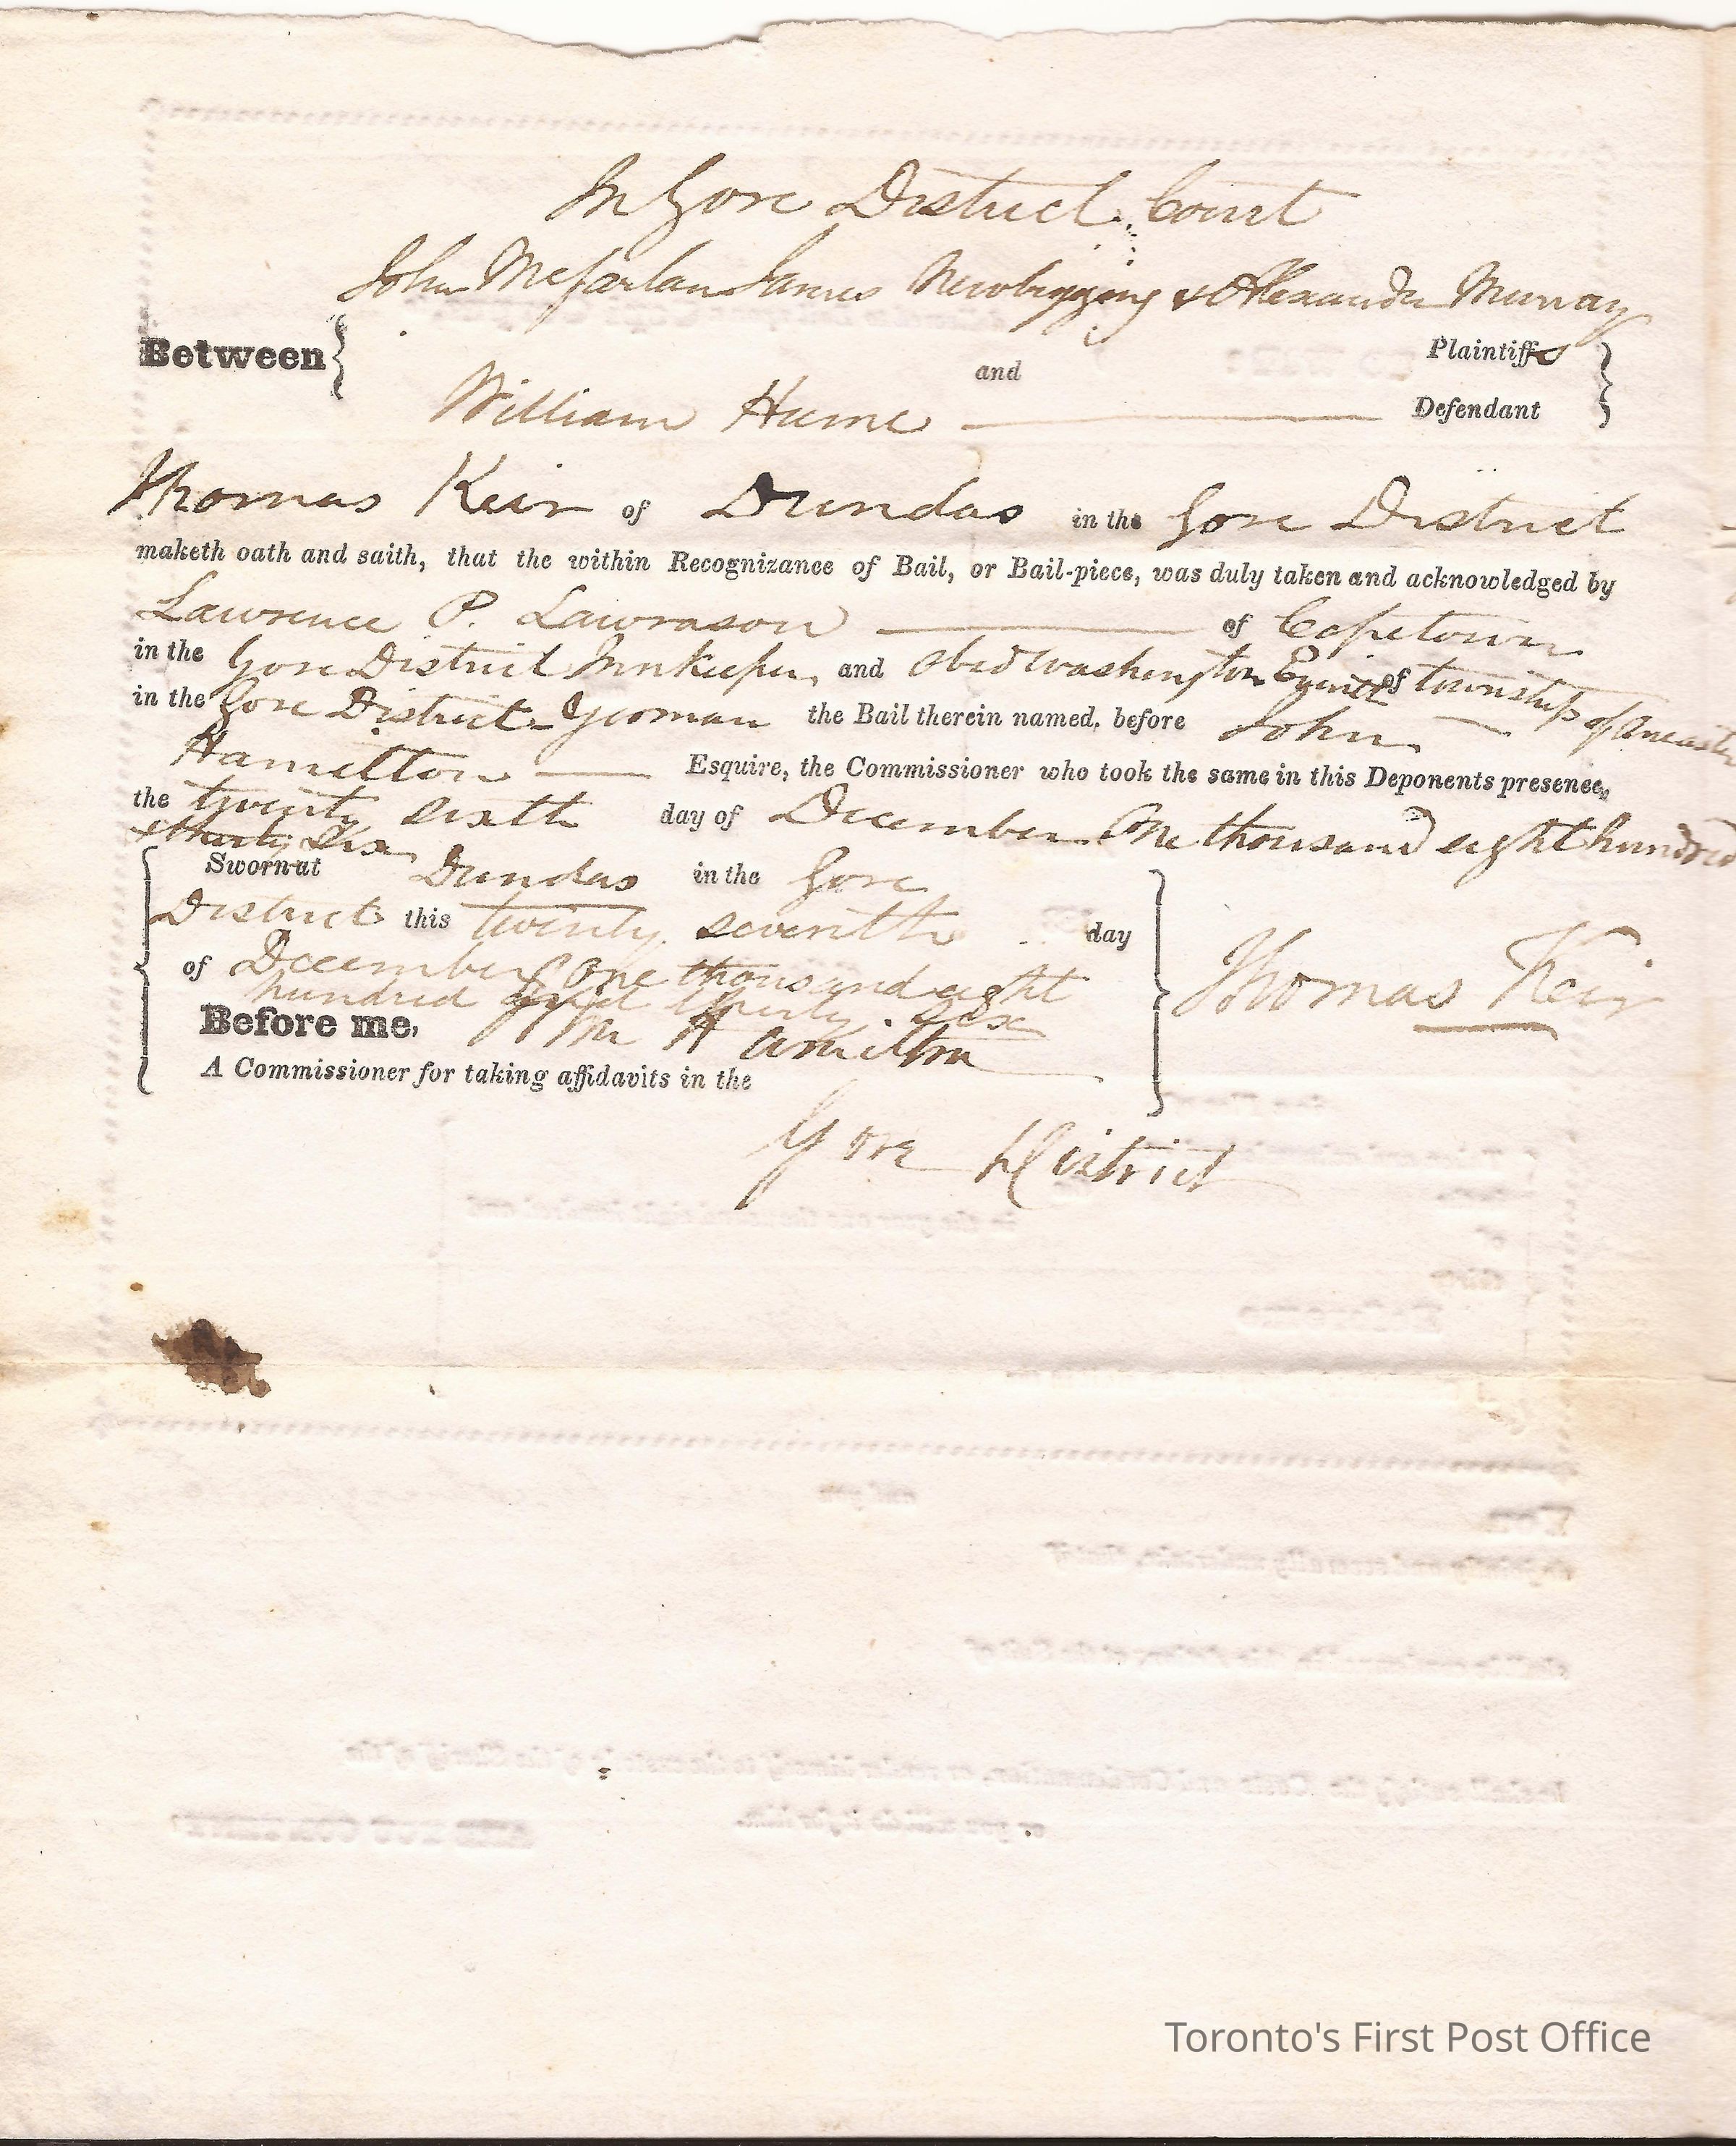 In Gore District Court
John McFarlan James Newbigging & Alexander Murray
Plaintiffs
Between and
William Hume Defendant
Thomas Keir of Dundas in the Gore District
maketh oath and saith, that the within Recognizance of Bail, or Bail-piece, was duly taken and acknowledged by
Lawrence P. Lawrason of Copetown
in the Gore District Innkeeper, and Obed Washington of township of Ancaster
in the Gore District Yeoman the Bail therein named, before John
Hamilton Esquire, the Commissioner who took the same in this Deponents presence,
the twenty sixth day of December One thousand eight hundred
& thirty six
Sworn at Dundas in the Gore
District this twenty seventh day
of December One thousand eight
hundred and thirty six
Thomas Keir
Before me, Jn Hamilton
A Commissioner for taking affidavits in the
Gore District
Toronto's First Post Office